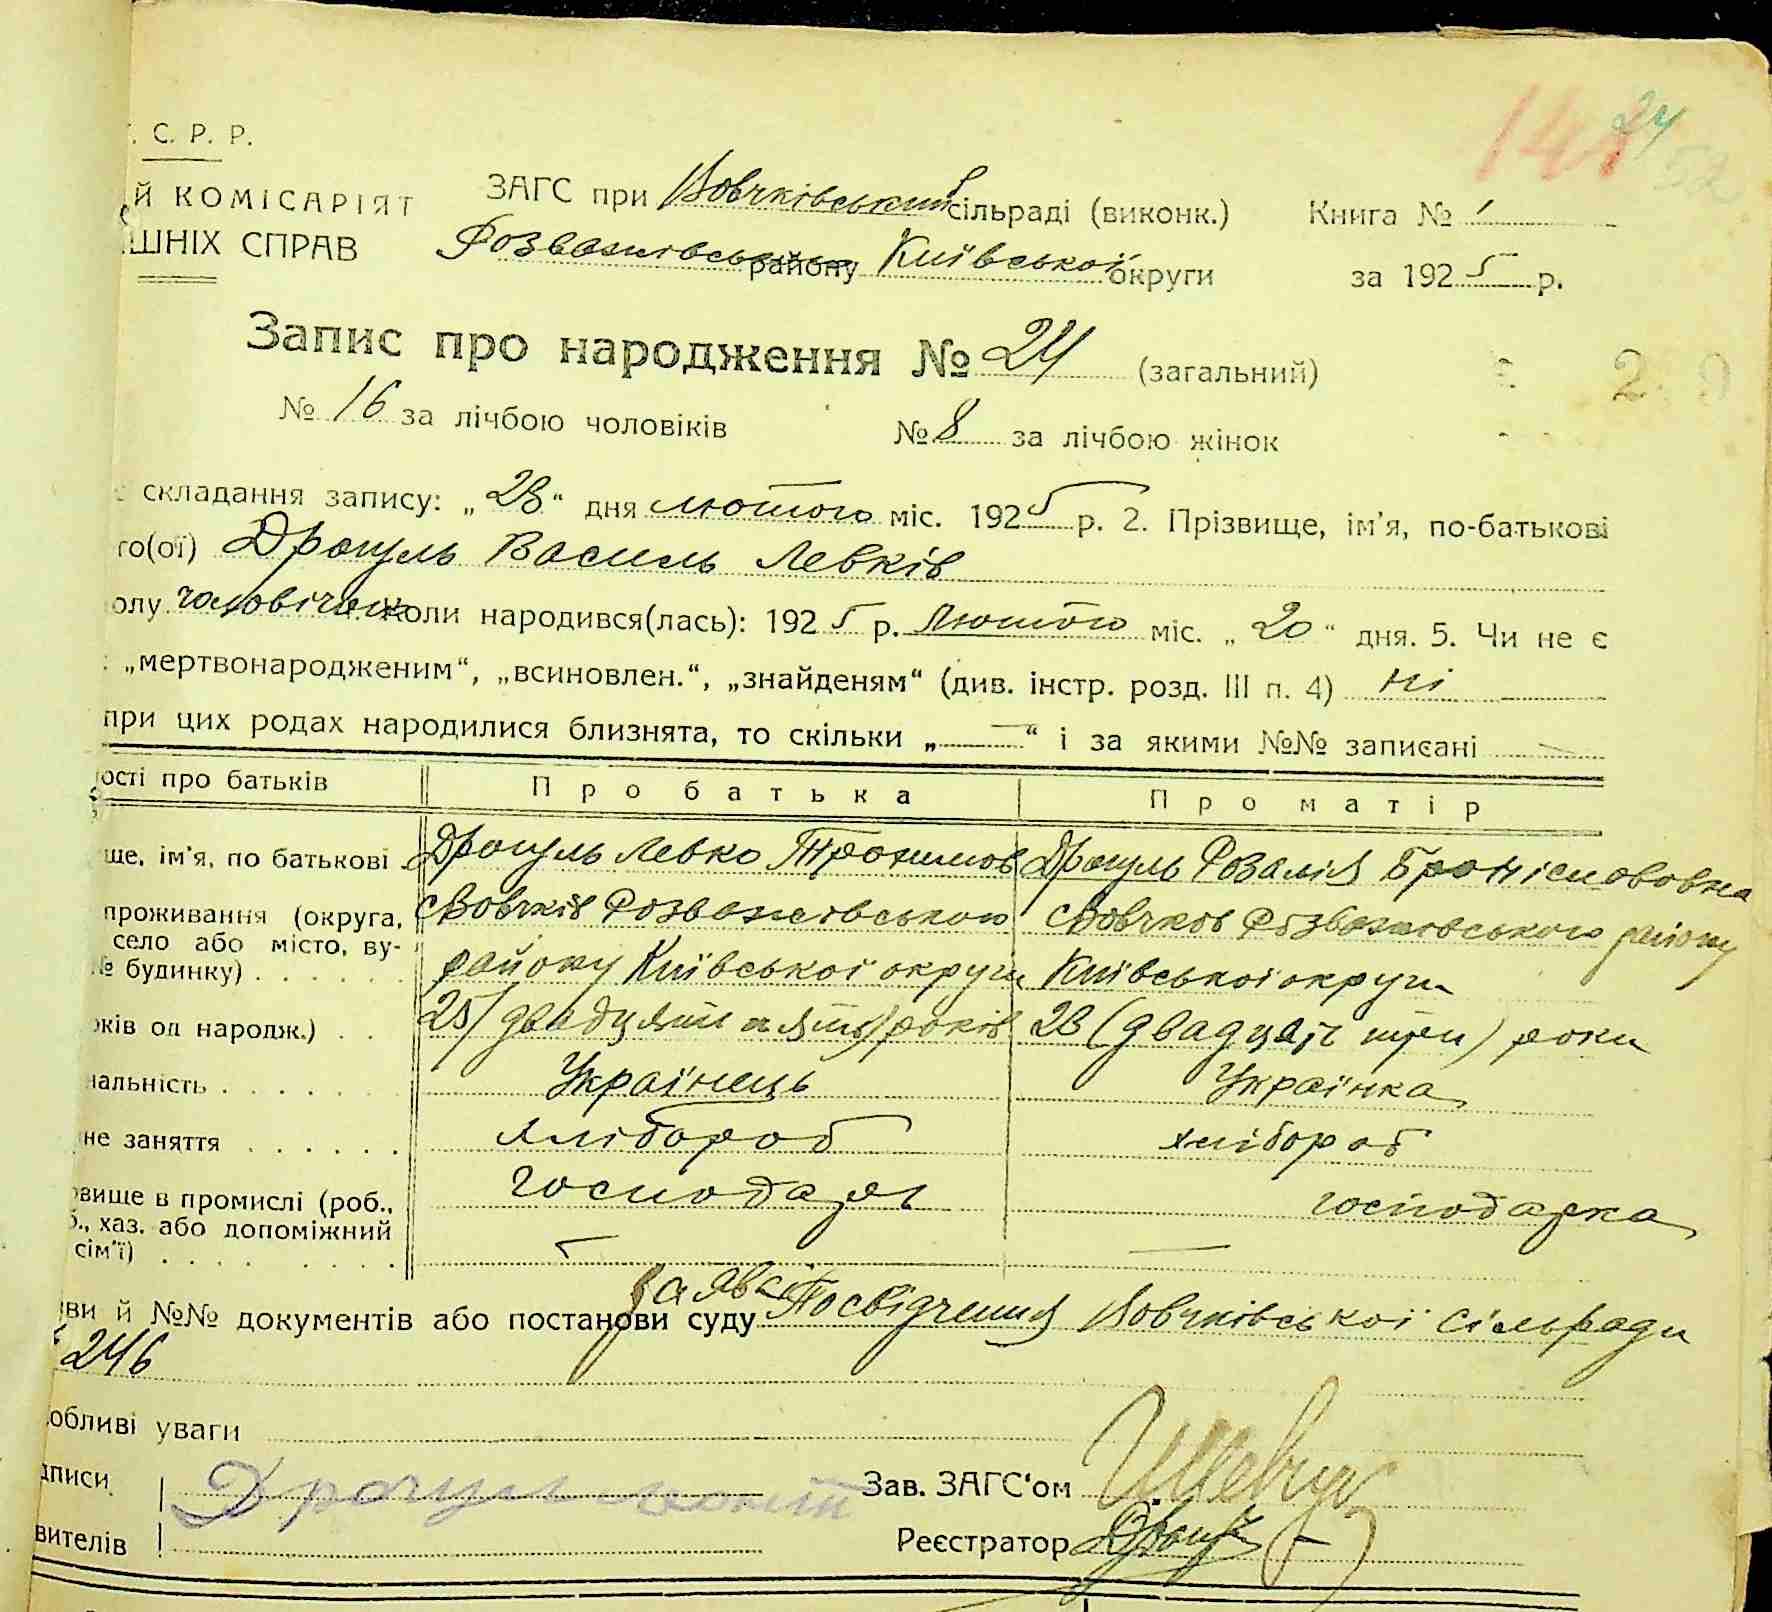 . С. Р. Р.
Й КОМІСАРІЯТ ЗАГС при Вовчківський сільраді (виконк.) Книга № 1
ШНІХ СПРАВ Розважівського району Київської округи за 1925 р.
141 24 52
Запис про народження № 24 (загальний)
№ 16 за лічбою чоловіків № 8 за лічбою жінок
складання запису: „28“ дня лютого міс. 1925 р. 2. Прізвище, ім'я, по-батькові
го(ої) Драгуль Василь Левків
олу чоловічого коли народився(лась): 1925 р. Лютого міс. „20“ дня. 5. Чи не є
: „мертвонародженим“, „всиновлен.“, „знайденям“ (див. інстр. розд. III п. 4) ні
при цих родах народилися близнята, то скільки „—“ і за якими №№ записані —
ості про батьків Про батька Про матір
ще, ім'я, по батькові Драгуль Левко Трохимов Драгуль Розалія Броніславовна
проживання (округа, с Вовчків Розважівського с Вовчков Розважовського району
село або місто, ву-
№ будинку) . . . . . району Київської округи Київської округи
оків од народж.) . . 25 (двадцять пять) років 23 (двадцять три) роки
нальність . . . . . . . Українець Українка
не заняття . . . . . . хлібороб хлібороб
овище в промислі (роб., господарь господарка
б., хаз. або допоміжний
сім'ї) . . . . . . . . — —
ви й №№ документів або постанови суду заява Посвідчення Вовчківської сільради
246
обливі уваги
дписи Драгуль Зав. ЗАГС'ом
вителів Реєстратор